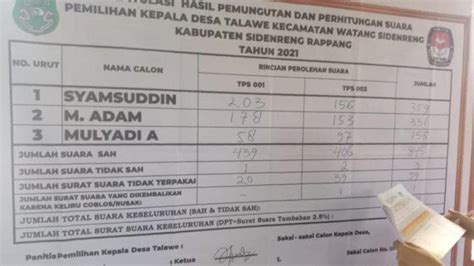 REKAPITULASI HASIL PEMUNGUTAN DAN PERHITUNGAN SUARA
PEMILIHAN KEPALA DESA TALAWE KECAMATAN WATANG SIDENRENG
KABUPATEN SIDENRENG RAPPANG
TAHUN 2021
NO. URUT NAMA CALON RINCIAN PEROLEHAN SUARA
TPS 001 TPS 002 JUMLAH
1 SYAMSUDDIN 203 156 359
2 M. ADAM 178 153 331
3 MULYADI A 58 97 155
JUMLAH SUARA SAH 439 406 845
JUMLAH SUARA TIDAK SAH
JUMLAH SUARA TIDAK TERPAKAI 20 39 59
JUMLAH SUARA YANG DIKEMBALIKAN
KARENA KELIRU COBLOS/RUSAK)
JUMLAH TOTAL SUARA KESELURUHAN (SAH & TIDAK SAH)
JUMLAH TOTAL SURAT SUARA KESELURUHAN (DPT+Surat Suara Tambahan 2.5%) :
Panitia Pemilihan Kepala Desa Talawe : Saksi - saksi Calon Kepala Desa,
: Ketua Saksi Calon No. U